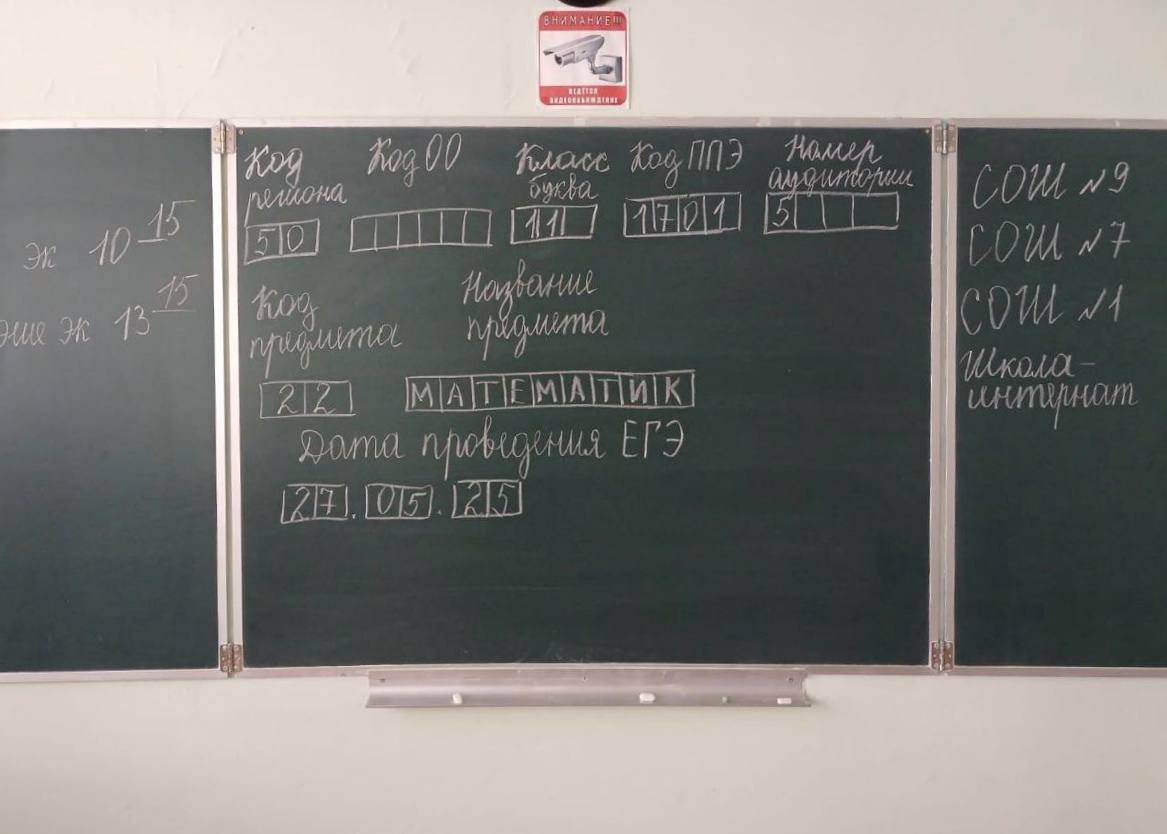 ВНИМАНИЕ!!!
ВЕДЁТСЯ
ВИДЕОНАБЛЮДЕНИЕ
эк 10 15
эк 13 15
Код региона
50
Код ОО
Класс буква
11
Код ППЭ
1701
Номер аудитории
5
Код предмета
22
Название предмета
МАТЕМАТИК
Дата проведения ЕГЭ
27.05.25
СОШ №9
СОШ №7
СОШ №1
Школа-
интернат